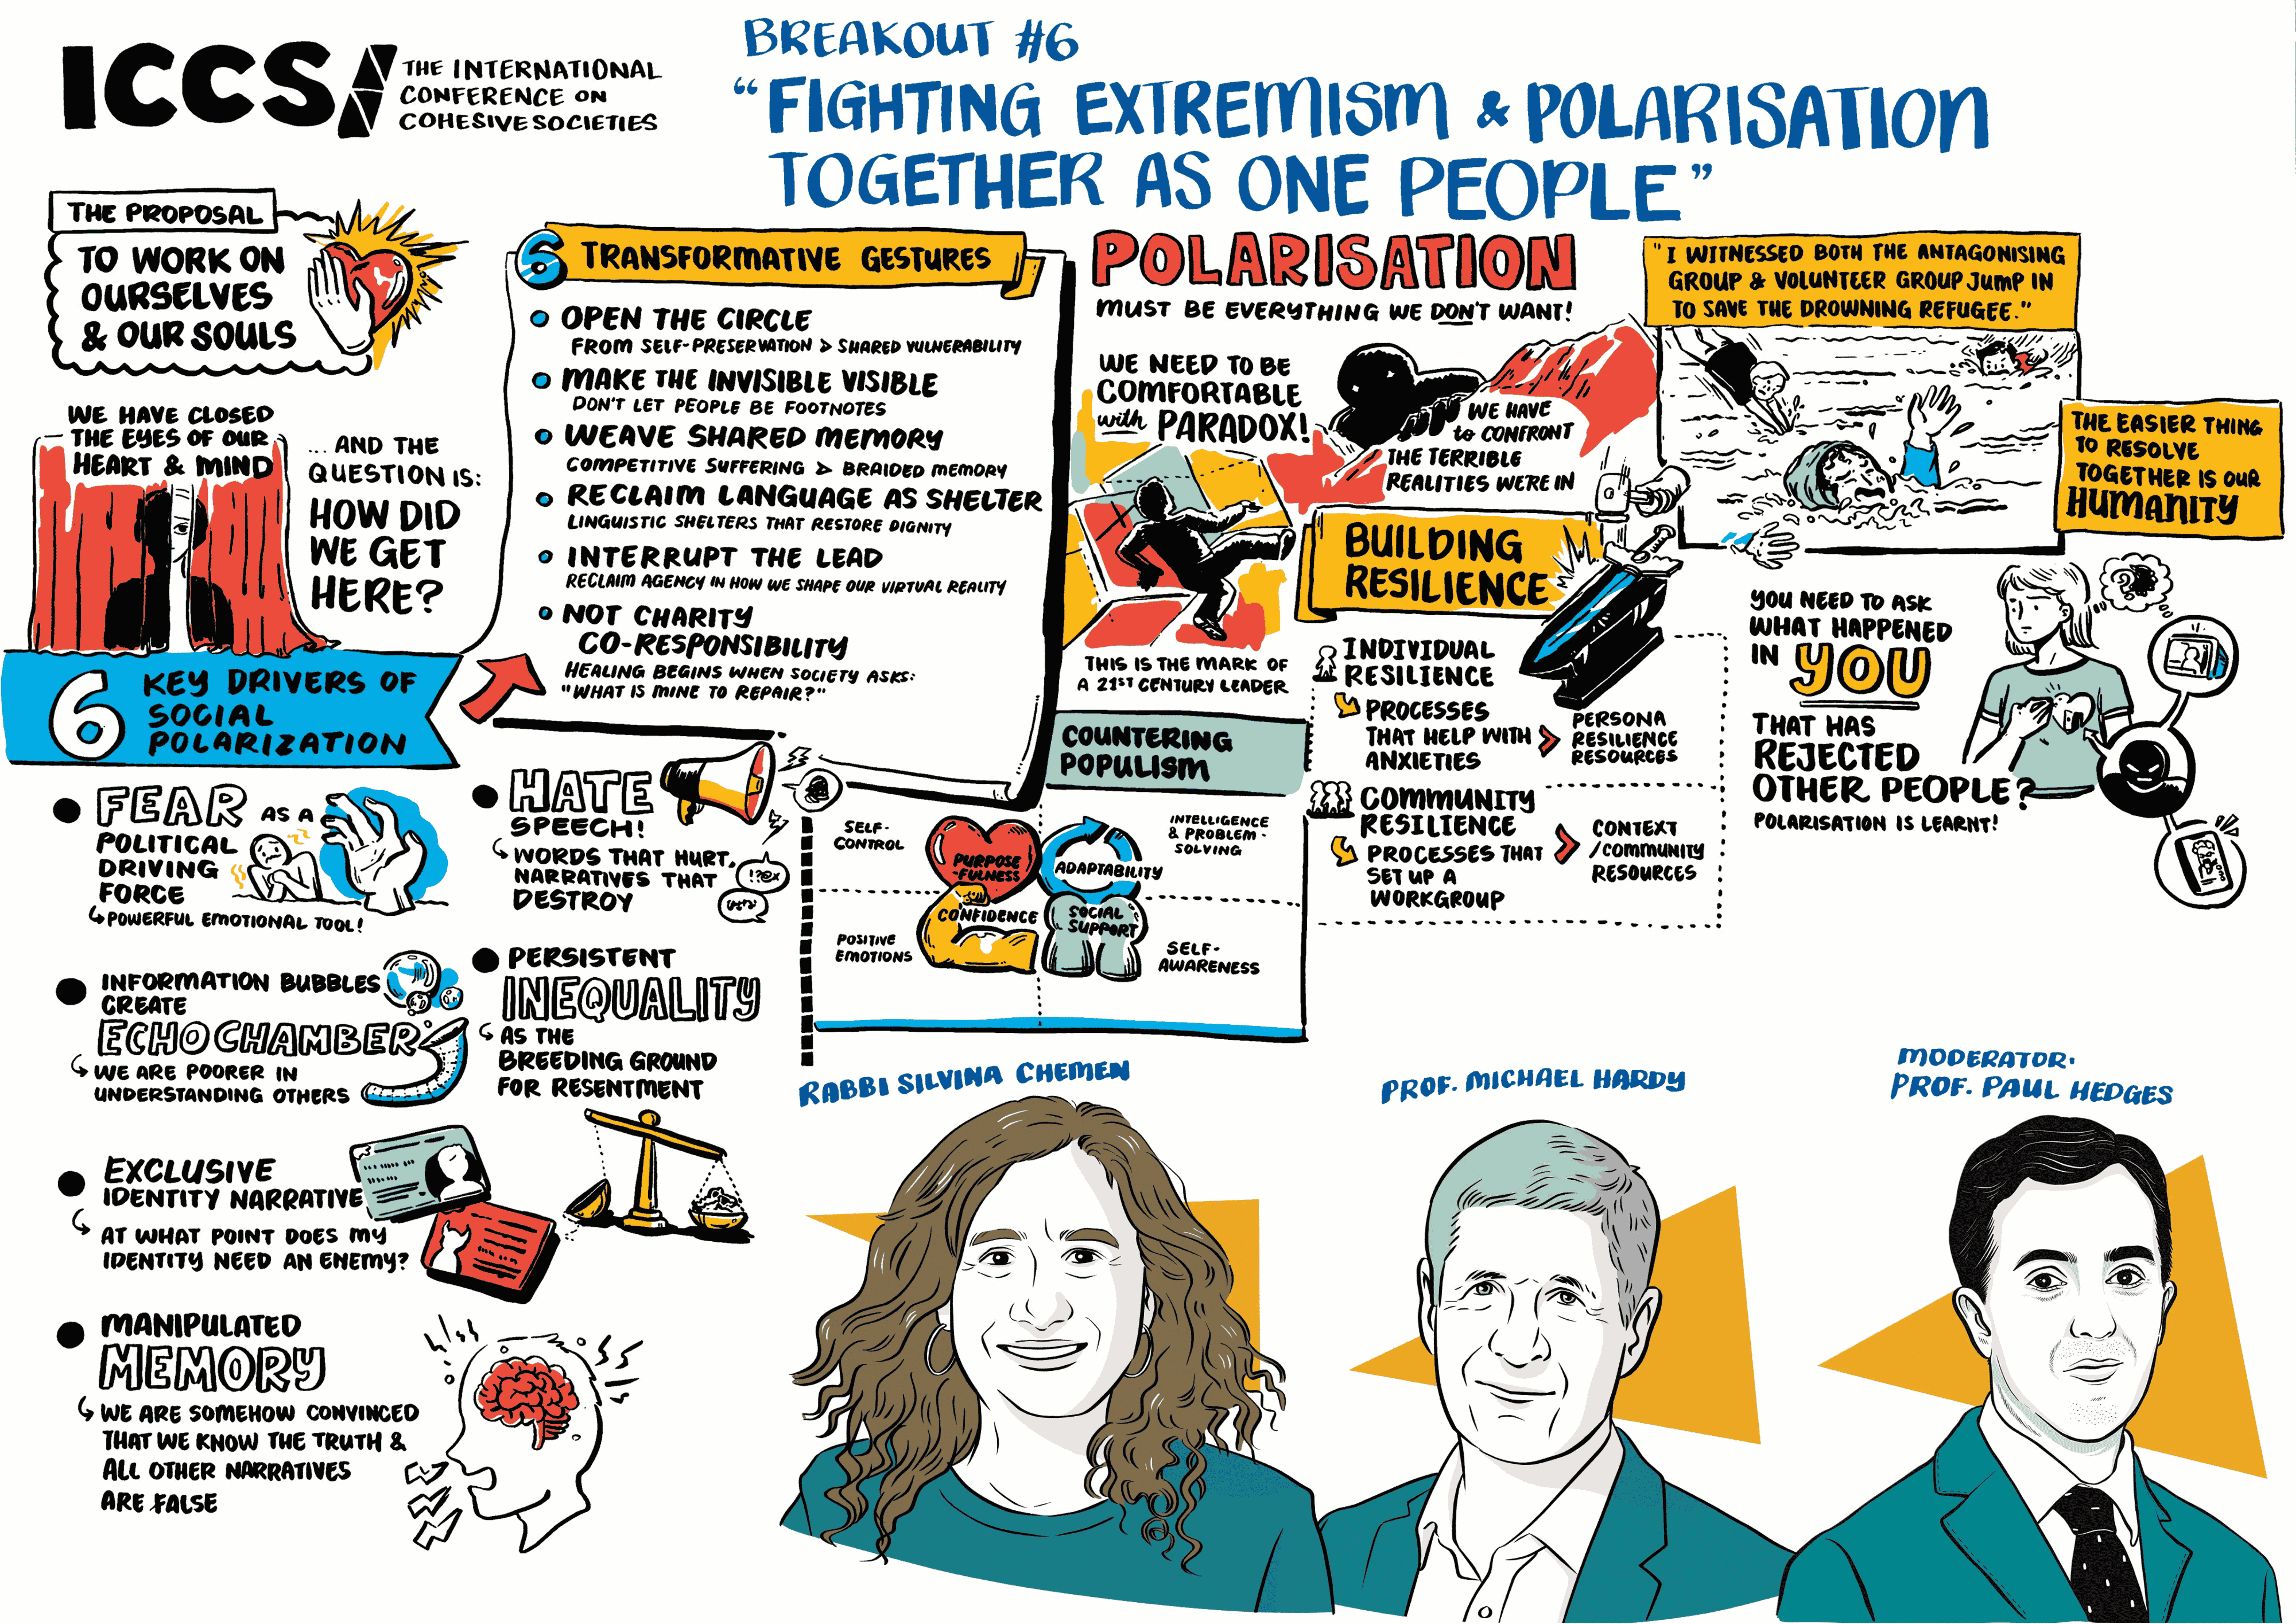 ICCS/
THE INTERNATIONAL
CONFERENCE ON
COHESIVE SOCIETIES
BREAKOUT #6
"FIGHTING EXTREMISM & POLARISATION
TOGETHER AS ONE PEOPLE"
THE PROPOSAL
TO WORK ON
OURSELVES
& OUR SOULS
WE HAVE CLOSED
THE EYES OF OUR
HEART & MIND
... AND THE
QUESTION IS:
HOW DID
WE GET
HERE?
6 KEY DRIVERS OF
SOCIAL
POLARIZATION
FEAR AS A
POLITICAL
DRIVING
FORCE
POWERFUL EMOTIONAL TOOL!
INFORMATION BUBBLES
CREATE
ECHO CHAMBER
WE ARE POORER IN
UNDERSTANDING OTHERS
EXCLUSIVE
IDENTITY NARRATIVE
AT WHAT POINT DOES MY
IDENTITY NEED AN ENEMY?
MANIPULATED
MEMORY
WE ARE SOMEHOW CONVINCED
THAT WE KNOW THE TRUTH &
ALL OTHER NARRATIVES
ARE FALSE
HATE
SPEECH!
WORDS THAT HURT,
NARRATIVES THAT
DESTROY
!?@x
PERSISTENT
INEQUALITY
AS THE
BREEDING GROUND
FOR RESENTMENT
6 TRANSFORMATIVE GESTURES
OPEN THE CIRCLE
FROM SELF-PRESERVATION > SHARED VULNERABILITY
MAKE THE INVISIBLE VISIBLE
DON'T LET PEOPLE BE FOOTNOTES
WEAVE SHARED MEMORY
COMPETITIVE SUFFERING > BRAIDED MEMORY
RECLAIM LANGUAGE AS SHELTER
LINGUISTIC SHELTERS THAT RESTORE DIGNITY
INTERRUPT THE LEAD
RECLAIM AGENCY IN HOW WE SHAPE OUR VIRTUAL REALITY
NOT CHARITY
CO-RESPONSIBILITY
HEALING BEGINS WHEN SOCIETY ASKS:
"WHAT IS MINE TO REPAIR?"
POLARISATION
MUST BE EVERYTHING WE DON'T WANT!
WE NEED TO BE
COMFORTABLE
with PARADOX!
THIS IS THE MARK OF
A 21ST CENTURY LEADER
WE HAVE
to CONFRONT
THE TERRIBLE
REALITIES WE'RE IN
COUNTERING
POPULISM
SELF-
CONTROL
INTELLIGENCE
& PROBLEM-
SOLVING
PURPOSE
-FULNESS
ADAPTABILITY
CONFIDENCE
SOCIAL
SUPPORT
POSITIVE
EMOTIONS
SELF-
AWARENESS
BUILDING
RESILIENCE
INDIVIDUAL
RESILIENCE
PROCESSES
THAT HELP WITH
ANXIETIES
PERSONA
RESILIENCE
RESOURCES
COMMUNITY
RESILIENCE
PROCESSES THAT
SET UP A
WORKGROUP
CONTEXT
/COMMUNITY
RESOURCES
"I WITNESSED BOTH THE ANTAGONISING
GROUP & VOLUNTEER GROUP JUMP IN
TO SAVE THE DROWNING REFUGEE."
THE EASIER THING
TO RESOLVE
TOGETHER IS OUR
HUMANITY
YOU NEED TO ASK
WHAT HAPPENED
IN YOU
THAT HAS
REJECTED
OTHER PEOPLE?
POLARISATION IS LEARNT!
RABBI SILVINA CHEMEN
PROF. MICHAEL HARDY
MODERATOR:
PROF. PAUL HEDGES